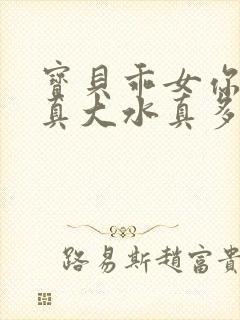 寶貝乖女你
真大水真多
路易斯趙富貴